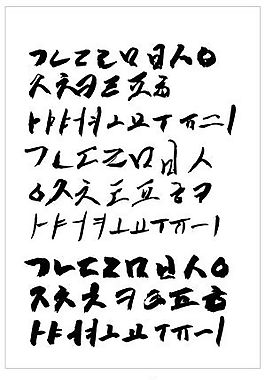 ㄱㄴㄷㄹㅁㅂㅅㅇ
ㅈㅊㅋㅌㅍㅎ
ㅏㅑㅓㅕㅗㅛㅜㅠㅡㅣ
ㄱㄴㄷㄹㅁㅂㅅ
ㅇㅈㅊㅌㅍㅎㅋ
ㅏㅑㅓㅕㅗㅛㅜㅠㅡㅣ
ㄱㄴㄷㄹㅁㅂㅅㅇ
ㅈㅊㅊㅋㅌㅍㅎ
ㅏㅑㅓㅕㅗㅛㅜㅠㅡㅣ